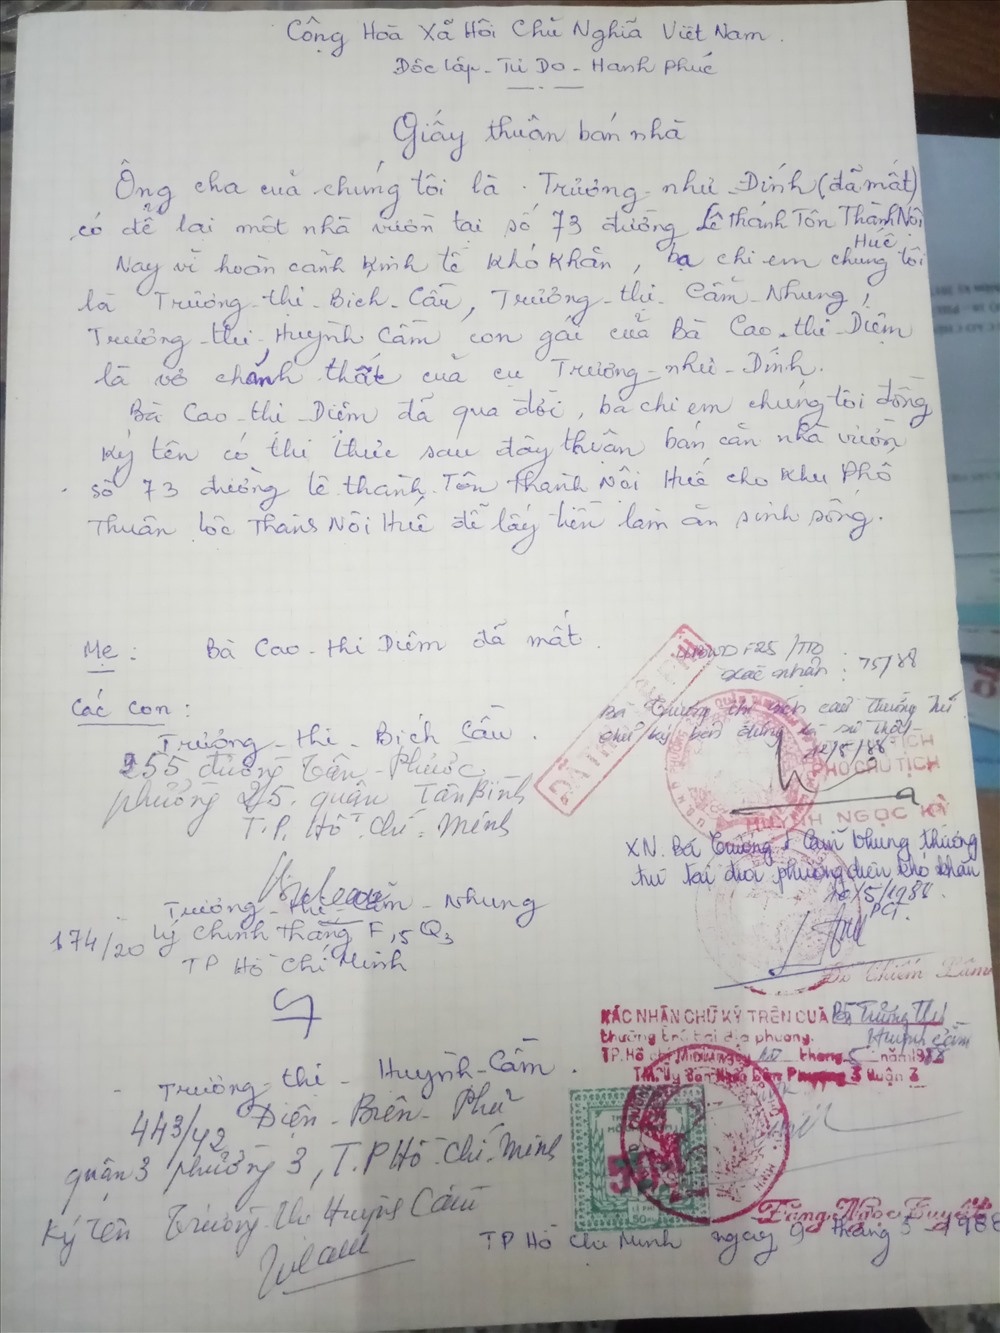 Cộng Hoà Xã Hội Chủ Nghĩa Việt Nam.
Độc lập - Tự Do - Hạnh Phúc
Giấy thuận bán nhà
Ông cha của chúng tôi là Trương như Đính (đã mất)
có để lại một nhà vườn tại số 73 đường Lê thánh Tôn Thành Nội
Huế
Nay vì hoàn cảnh kinh tế khó khăn, ba chị em chúng tôi
là Trương thị Bích Cầu, Trương thị Cẩm Nhung,
Trương thị Huỳnh Cầm con gái của Bà Cao thị Diệm
là vợ chánh thất của cụ Trương như Đính.
Bà Cao thị Diệm đã qua đời, ba chị em chúng tôi đồng
ký tên có thị thực sau đây thuận bán căn nhà vườn
số 73 đường lê thánh Tôn thành Nội Huế cho Khu Phố
Thuận lộc Thành Nội Huế để lấy tiền làm ăn sinh sống.
Mẹ: Bà Cao thị Diệm đã mất.
xác nhận: 75/88
Các con:
Trương thị Bích Cầu.
255 đường Tân Phước
phường 25 quận Tân Bình
T.P. Hồ Chí Minh
12/5/88
PHÓ CHỦ TỊCH
HUỲNH NGỌC KỲ
XN. Bà Trương t Cẩm Nhung thường
trú tại địa phương diện khó khăn
/5/1988
PCT.
- Trương thị Cẩm Nhung
174/20 Lý chính thắng F,5 Q3
TP Hồ Chí Minh
XÁC NHẬN CHỮ KÝ TRÊN CỦA Bà Trương Thị
Huỳnh Cầm
thường trú tại địa phương.
TP. Hồ chí Minh ngày tháng 5 năm 1988
TM. Ủy ban Nhân dân Phường 3 Quận 3
- Trương thị Huỳnh Cầm.
443/42 Điện Biên Phủ
quận 3 phường 3, T.P Hồ Chí Minh
Ký tên Trương Thị Huỳnh Cầm
TP Hồ Chí Minh ngày 9 tháng 5 1988